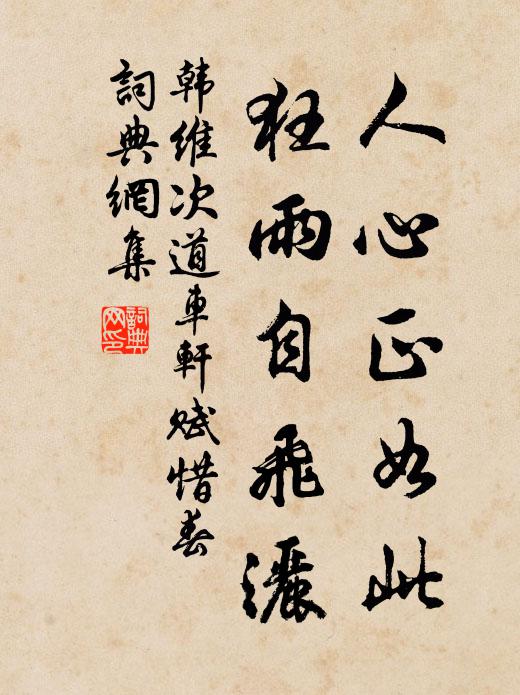 人心正如此
狂雨自飛灑
韩維次道車軒賦惜春
詞典網集
詞典网印